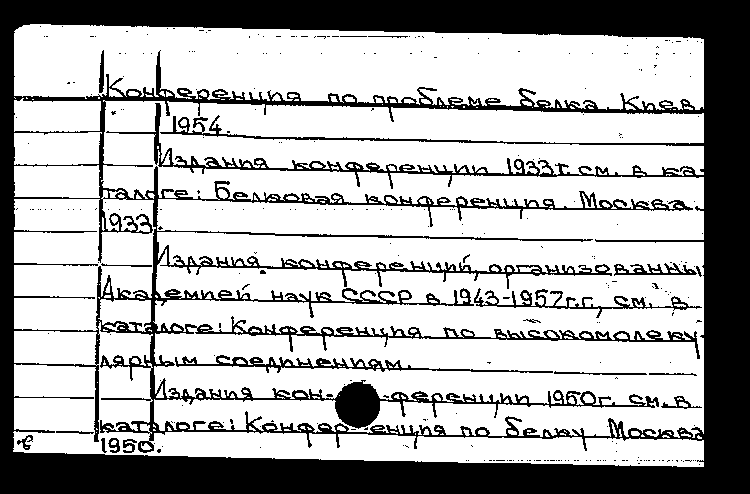 Конференция по проблеме белка. Киев.
1954.
Издания конференции 1933г. см. в ка-
талоге: Белковая конференция. Москва.
1933.
Издания конференций, организованны
Академией наук СССР в 1943-1957г.г., см. в
каталоге: Конференция по высокомолеку-
лярным соединениям.
Издания кон-ференции 1950г. см. в
каталоге: Конференция по белку Москва
1950.